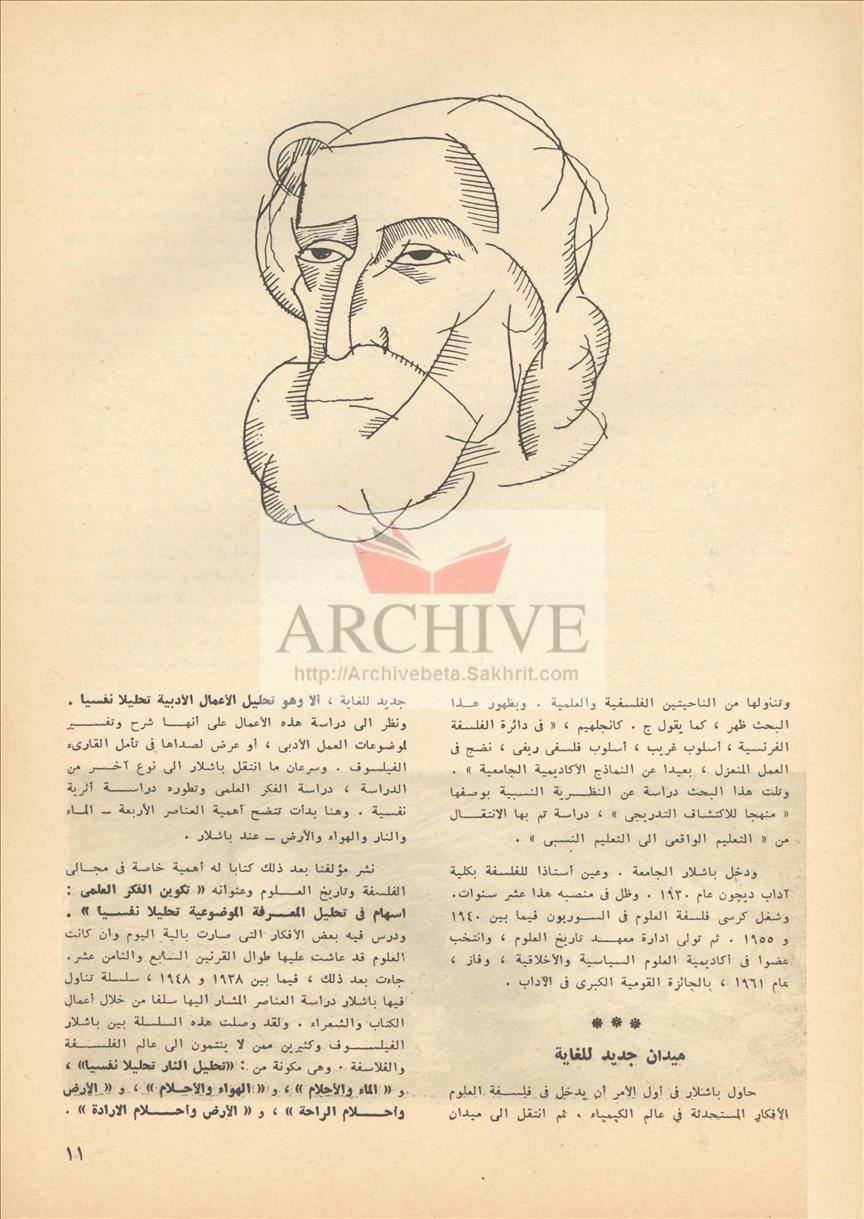 ARCHIVE
http://Archivebeta.Sakhrit.com
وتناولها من الناحيتين الفلسفية والعلمية . وبظهور هذا
البحث ظهر ، كما يقول ج . كانجلهيم ، « فى دائرة الفلسفة
الفرنسية ، أسلوب غريب ، أسلوب فلسفى ريفى ، نضج فى
العمل المنعزل ، بعيدا عن النماذج الأكاديمية الجامعية » .
وتلت هذا البحث دراسة عن النظرية النسبية بوصفها
« منهجا للاكتشاف التدريجى » ، دراسة تم بها الانتقال
من « التعليم الواقعى الى التعليم النسبى » .
ودخل باشلار الجامعة . وعين أستاذا للفلسفة بكلية
آداب ديجون عام ١٩٣٠ . وظل فى منصبه هذا عشر سنوات.
وشغل كرسى فلسفة العلوم فى السوربون فيما بين ١٩٤٠
و ١٩٥٥ . ثم تولى ادارة معهد تاريخ العلوم ، وانتخب
عضوا فى أكاديمية العلوم السياسية والأخلاقية ، وفاز ،
عام ١٩٦١ ، بالجائزة القومية الكبرى فى الآداب .
* * *
ميدان جديد للغاية
حاول باشلار فى أول الأمر أن يدخل فى فلسفة العلوم
الأفكار المستحدثة فى عالم الكيمياء . ثم انتقل الى ميدان
جديد للغاية ، ألا وهو تحليل الأعمال الأدبية تحليلا نفسيا .
ونظر الى دراسة هذه الأعمال على أنها شرح وتفسير
لموضوعات العمل الأدبى ، أو عرض لصداها فى تأمل القارىء
الفيلسوف . وسرعان ما انتقل باشلار الى نوع آخر من
الدراسة ، دراسة الفكر العلمى وتطوره دراسة أثرية
نفسية . وهنا بدأت تتضح أهمية العناصر الأربعة ــ الماء
والنار والهواء والأرض ــ عند باشلار .
نشر مؤلفنا بعد ذلك كتابا له أهمية خاصة فى مجالى
الفلسفة وتاريخ العلوم وعنوانه « تكوين الفكر العلمى :
اسهام فى تحليل المعرفة الموضوعية تحليلا نفسيا » .
ودرس فيه بعض الأفكار التى صارت بالية اليوم وان كانت
العلوم قد عاشت عليها طوال القرنين السابع والثامن عشر.
جاءت بعد ذلك ، فيما بين ١٩٣٨ و ١٩٤٨ ، سلسلة تناول
فيها باشلار دراسة العناصر المشار اليها سلفا من خلال أعمال
الكتاب والشعراء . ولقد وصلت هذه السلسلة بين باشلار
الفيلسوف وكثيرين ممن لا ينتمون الى عالم الفلسفة
والفلاسفة . وهى مكونة من : «تحليل النار تحليلا نفسيا» ،
و « الماء والأحلام » ، و « الهواء والأحلام » ، و « الأرض
وأحلام الراحة » ، و « الأرض وأحلام الارادة » .
١١